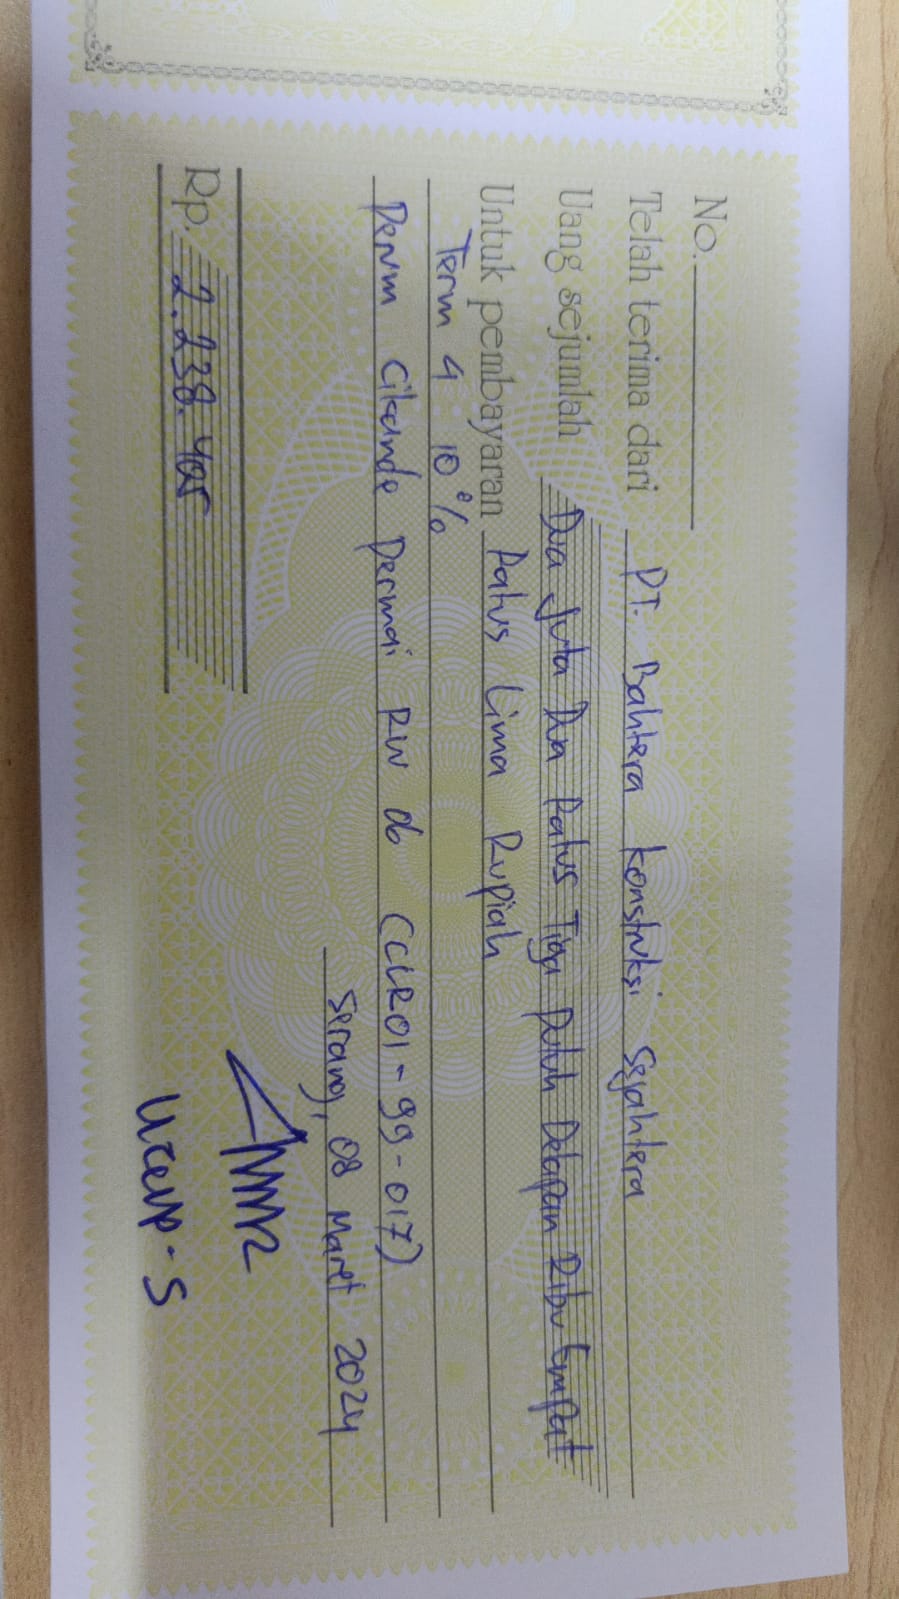 No.
Telah terima dari PT. Bahtera Konstruksi Sejahtera
Uang sejumlah Dua Juta Dua Ratus Tiga Puluh Delapan Ribu Empat
Untuk pembayaran Ratus Lima Rupiah
Term 4 10%
Perum Cikande Permai RW 06 (CLR01-99-017)
Serang, 08 Maret 2024
Rp. 2.238.405
Ucup-S